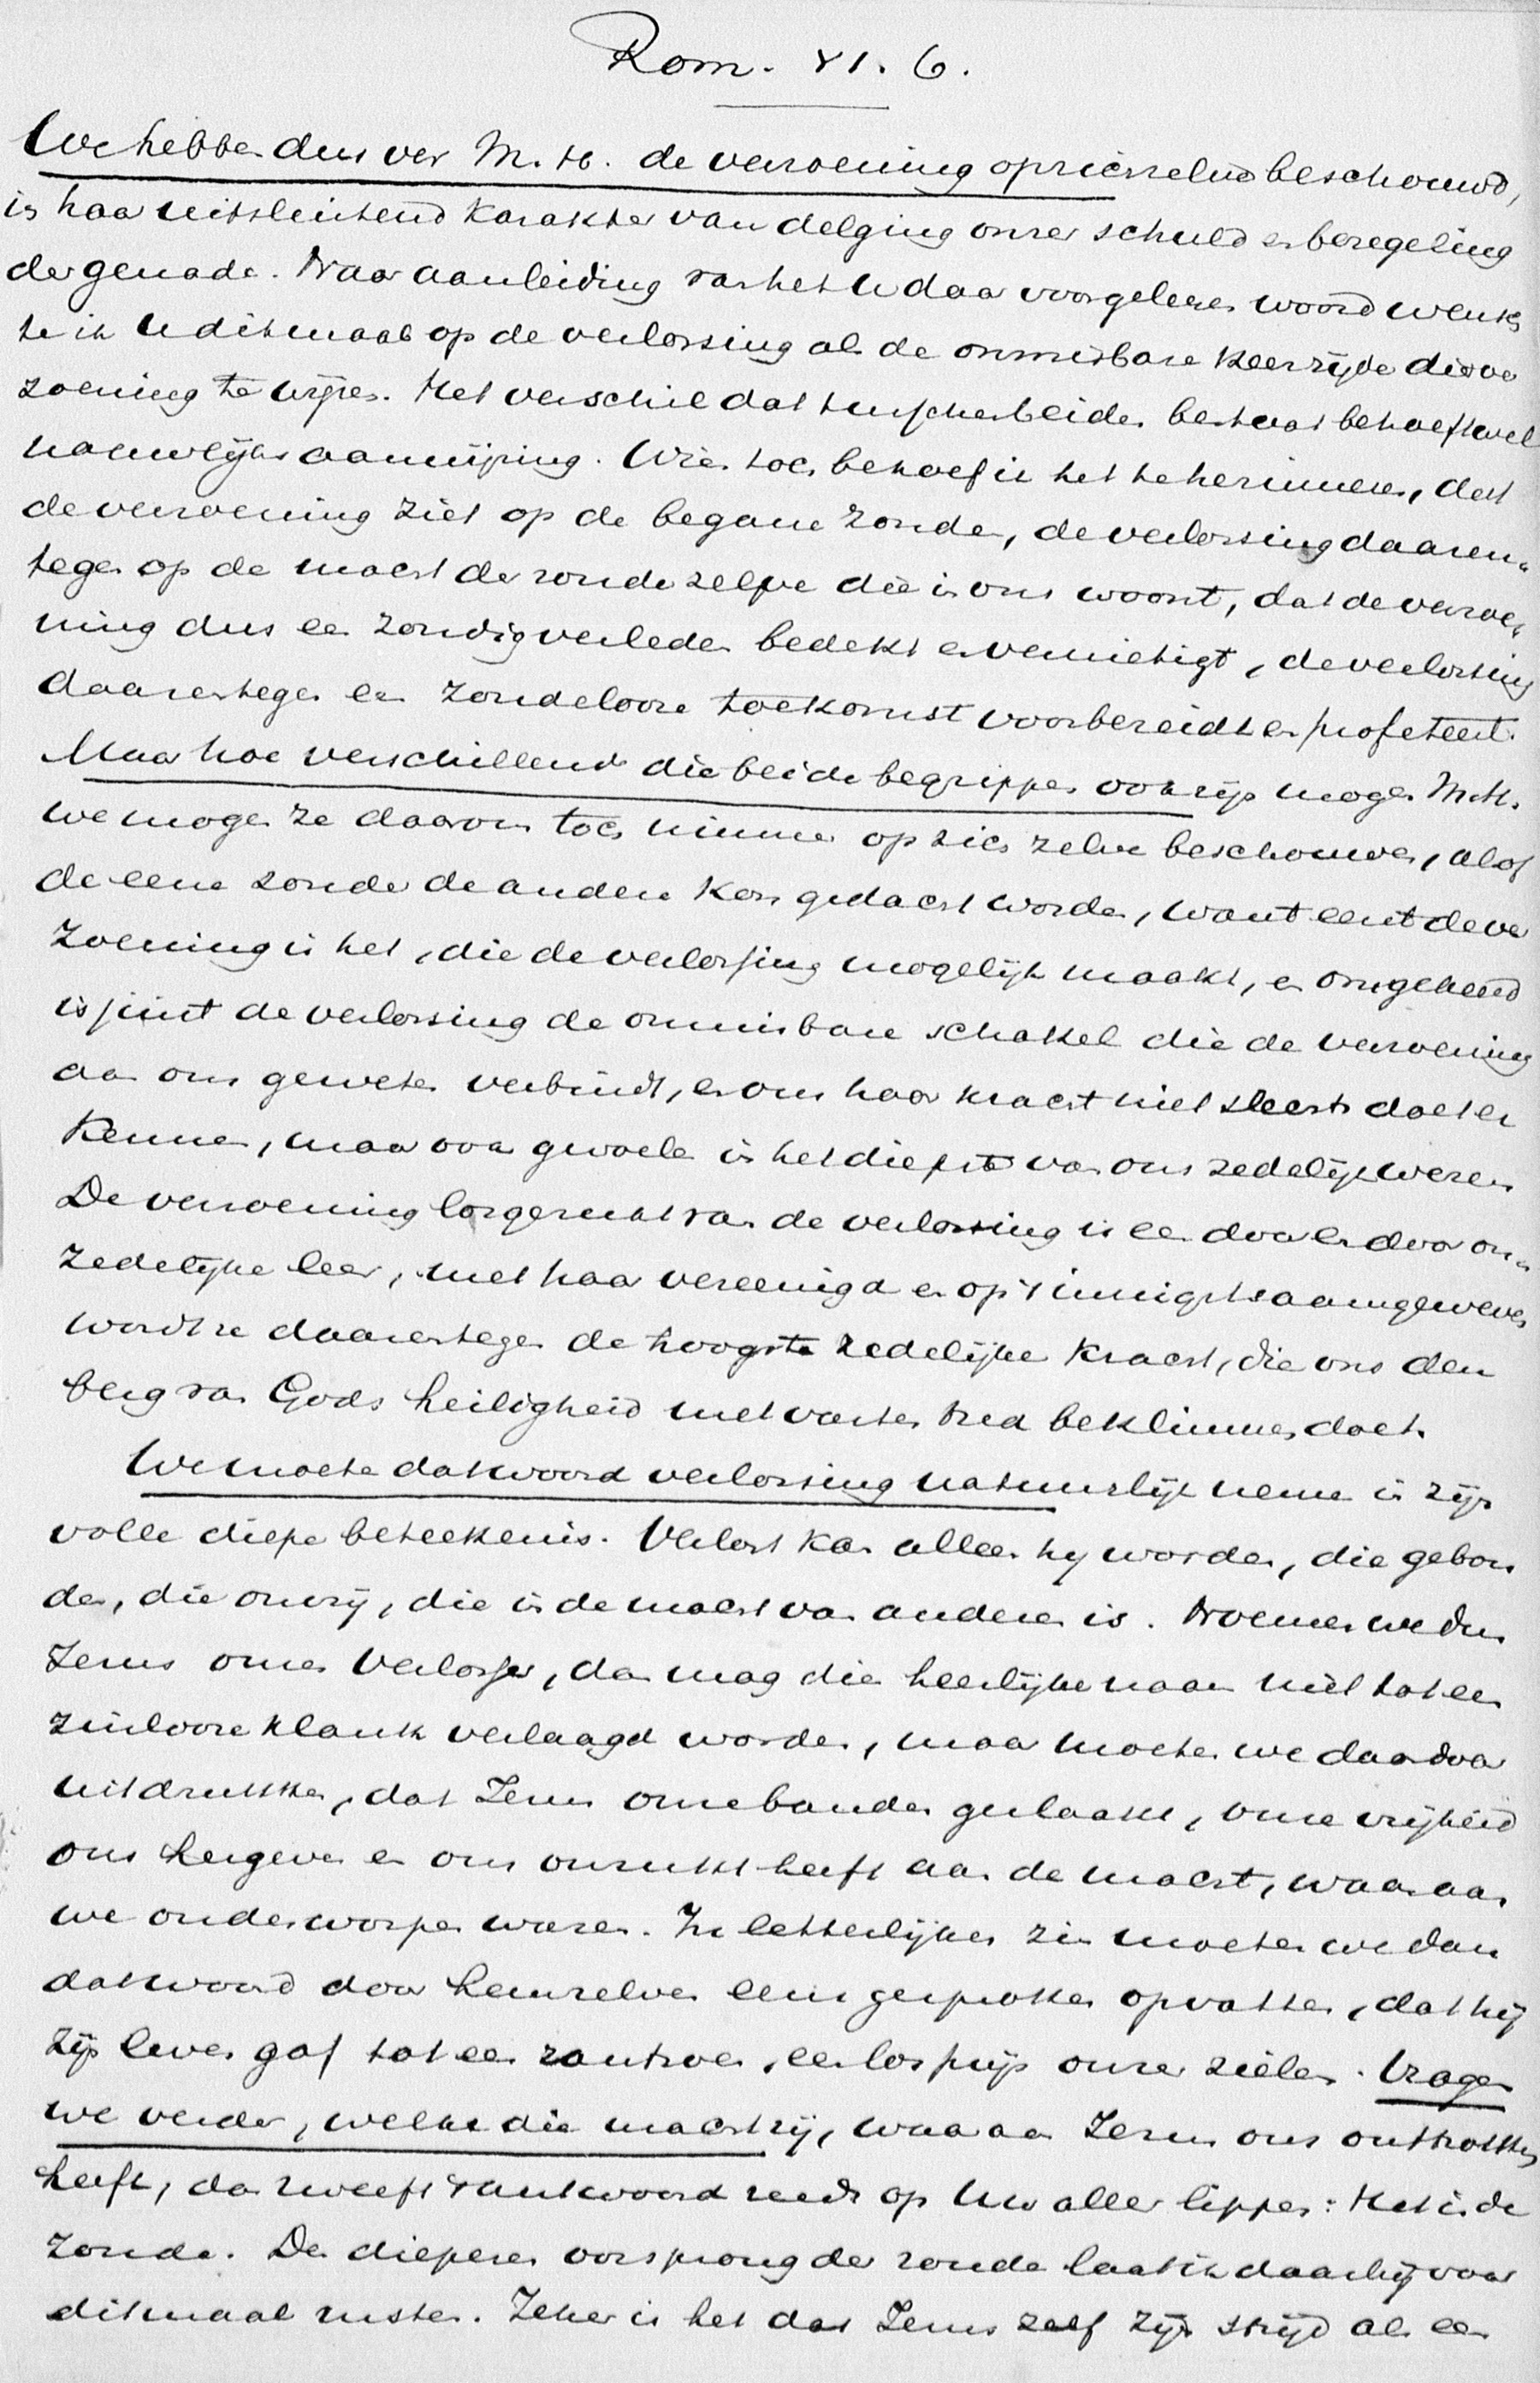 Rom. VI. 6.
We hebben dus ver M. H. de verzoening op zich zelve beschouwd,
in haar uitsluitend karakter van delging onzer schuld en bezegeling
der genade. Naar aanleiding van het U daar voorgelezen woord wensch
te ik U ditmaal op de verlossing als de onmisbare keerzijde dier ver
zoening te wijzen. Het verschil dat tusschen beiden bestaat behoeft wel
nauwlijks aanwijzing. Wien toch behoef ik het te herinneren, dat
de verzoening ziet op de begane zonden, de verlossing daaren-
tegen op de macht der zonde zelve die in ons woont, dat de verzoe-
ning dus een zondig verleden bedekt en vernietigt, de verlossing
daarentegen een zondeloze toekomst voorbereidt en profeteert.
Maar hoe verschillend die beide begrippen ook zijn mogen M. H.
we mogen ze daarom toch nimmer op zich zelve beschouwen, alsof
de eene zonder de andere kon gedacht worden, want eerst de ver
zoening is het, die de verlossing mogelijk maakt, en omgekeerd
is juist de verlossing de onmisbare schakel die de verzoening
aan ons geweten verbindt, en ons haar kracht niet slechts doet er
kennen, maar ook gevoelen in het diepste van ons zedelijk wezen.
De verzoening losgerukt van de verlossing is een door en door on-
zedelijke leer, met haar vereenigd en op 't innigst saamgeweven
wordt ze daarentegen de hoogste zedelijke kracht, die ons den
berg van Gods heiligheid met vasten tred beklimmen doet.
We moeten dat woord verlossing natuurlijk nemen in zijn
volle diepe beteekenis. Verlost kan alleen hij worden, die gebon
den, die onvrij, die in de macht van anderen is. Noemen we dus
Jezus onzen Verlosser, dan mag die heerlijke naam niet tot een
zinloozen klank verlaagd worden, maar moeten we daardoor
uitdrukken, dat Jezus onze banden geslaakt, onze vrijheid
ons hergeven en ons ontrukt heeft aan de macht, waaraan
we onderworpen waren. In letterlijken zin moeten we dan
dat woord door hemzelven eens gesproken opvatten, dat hij
zijn leven gaf tot een rantsoen, een losprijs onzer zielen. Vragen
we verder, welke die macht zij, waaraan Jezus ons onttrokken
heeft, dan zweeft 't antwoord reeds op Uw aller lippen: Het is de
zonde. Den dieperen oorsprong der zonde laat ik daarbij voor
ditmaal rusten. Zeker is het dat Jezus zelf zijn strijd als een